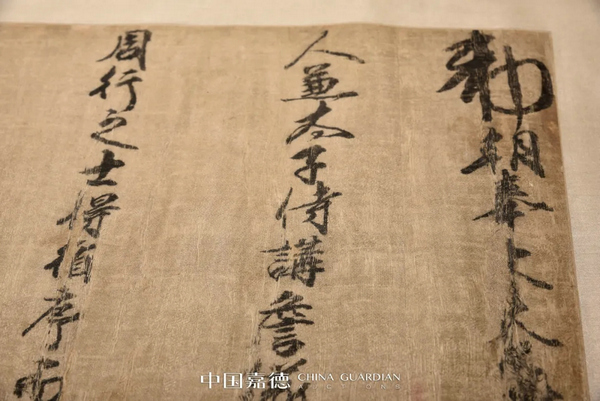 勅朝奉大夫
人兼太子侍講詹
周行之士得道孝
中国嘉德 CHINA GUARDIAN